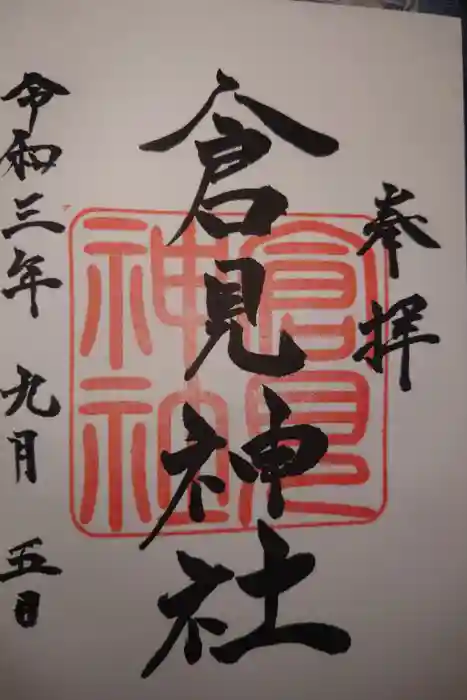 奉拝
倉見神社
倉見
神社
令和三年九月五日